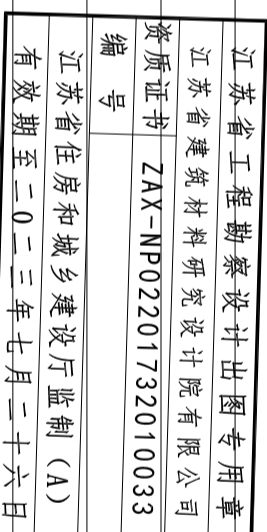 江苏省工程勘察设计出图专用章
江苏省建筑材料研究设计院有限公司
资质证书
编号
ZAX-NP02201732010033
江苏省住房和城乡建设厅监制(A)
有效期至二0二三年七月二十六日